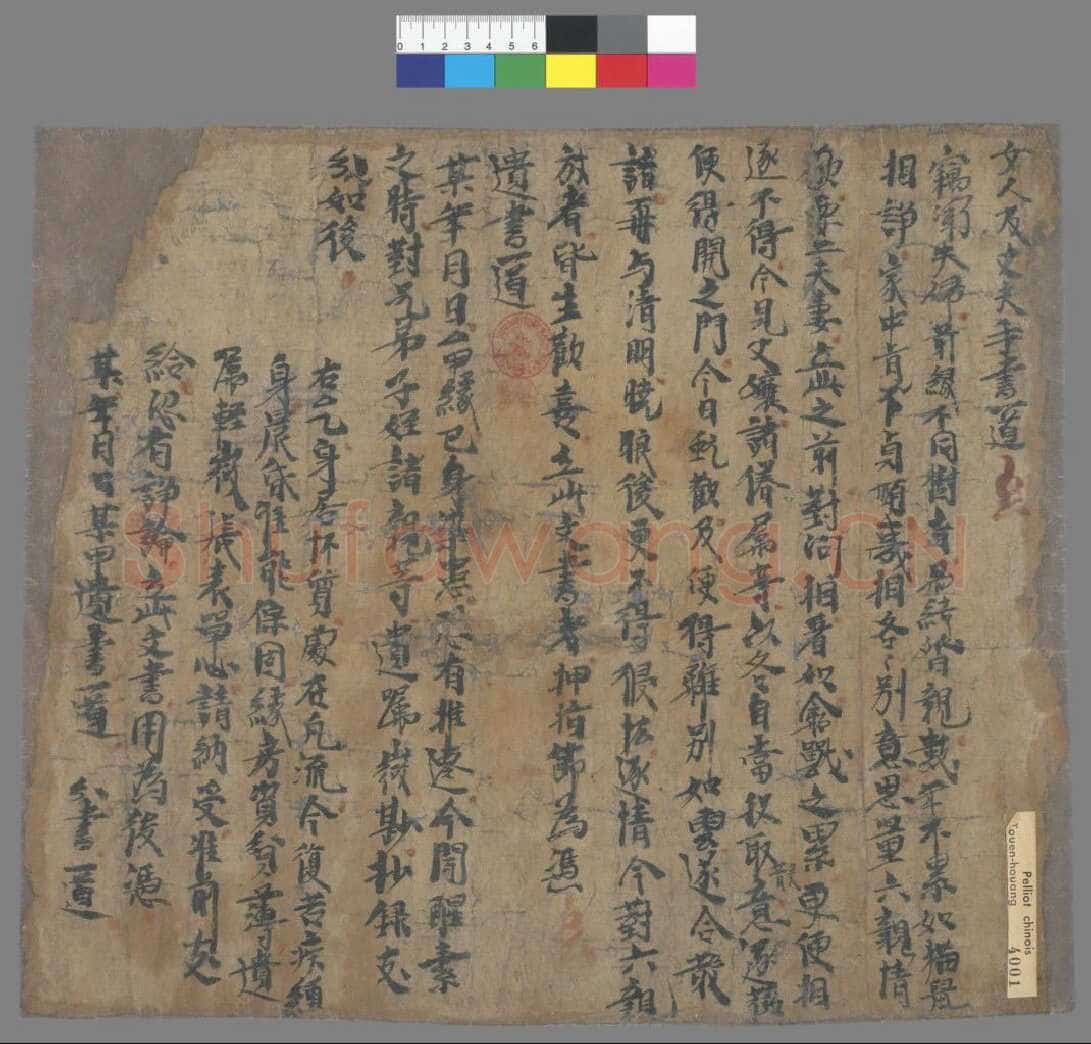 女人及丈夫手書一道
竊聞夫婦前緣不同樹者易結皆親數年不累如猫鼠
相諍家中肯不貞順義相各各別意思量六親情
夫妻立此之前對問相看如禽獸之累更便相
逐不得今見父孃諸眷屬等以各自當投取散意逐歡
便得開之門今日甑歡及便得離別如雲遂合散
諸再与清明曉眼後更不得侵恡逐情今對六親
放者皆生歡喜立此文書者押指節為憑
遺書一道
某年月日厶甲緣已身染患恐有推遷今聞醒素
之時對兄弟子姪諸親等遺囑幾勘抄錄支
如後
右厶乙身居怀幻處在凡流今復苦疾纏
身晨昏難能保固緣房資貧薄遺
囑輕微張表單心請納受准前支
給恐有諍論立此文書用為後憑
某年月日某甲遺書一道
分書一道
Pelliot chinois
Touen-houang
4001
0 1 2 3 4 5 6
Shufawang.CN